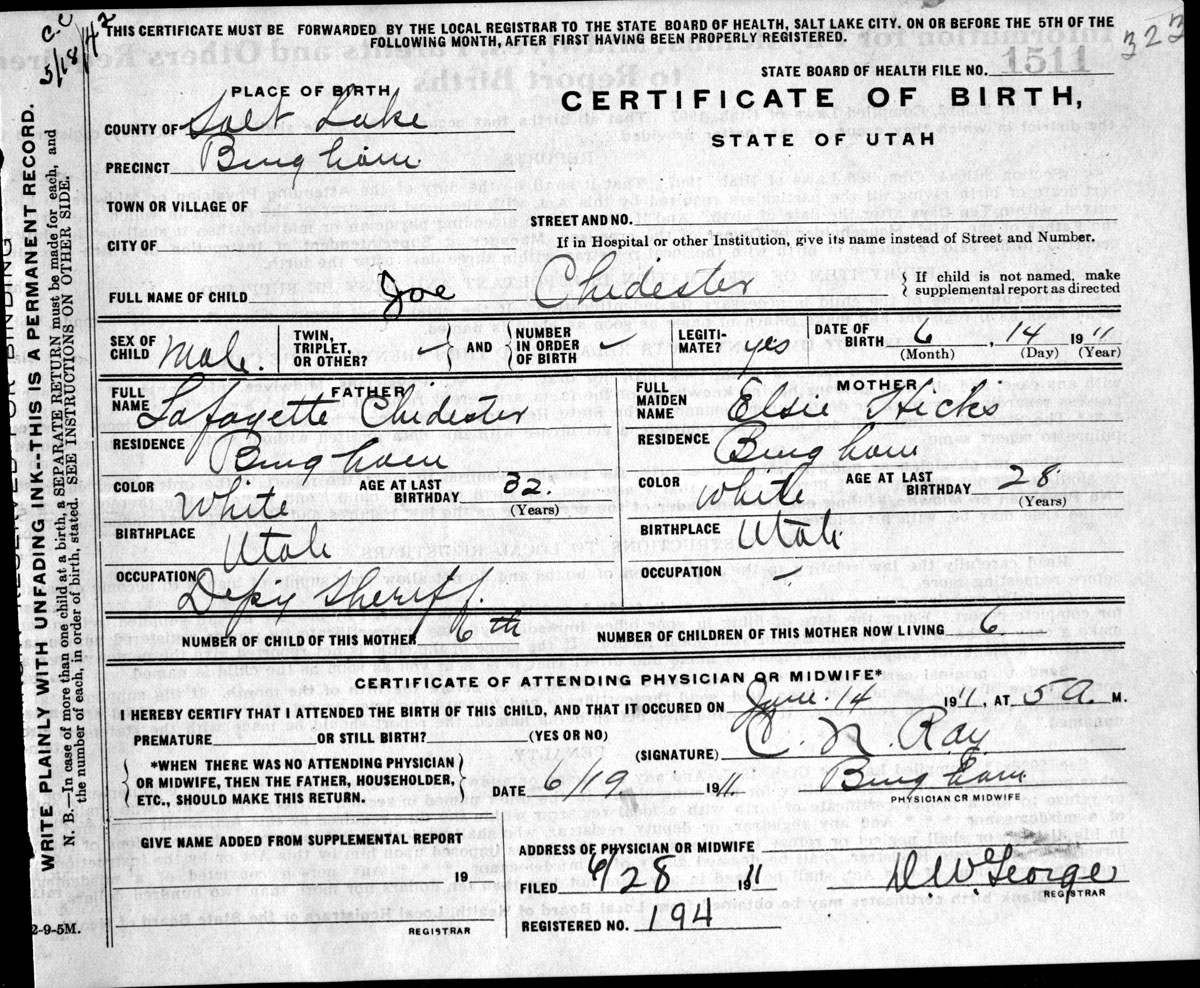 C.C.
5/18/42
THIS CERTIFICATE MUST BE FORWARDED BY THE LOCAL REGISTRAR TO THE STATE BOARD OF HEALTH, SALT LAKE CITY. ON OR BEFORE THE 5TH OF THE
FOLLOWING MONTH, AFTER FIRST HAVING BEEN PROPERLY REGISTERED.
323
STATE BOARD OF HEALTH FILE NO. 1511
PLACE OF BIRTH
CERTIFICATE OF BIRTH,
STATE OF UTAH
COUNTY OF Salt Lake
PRECINCT Bingham
TOWN OR VILLAGE OF
STREET AND NO.
CITY OF
If in Hospital or other Institution, give its name instead of Street and Number.
FULL NAME OF CHILD Joe Chidester
{ If child is not named, make
supplemental report as directed
SEX OF CHILD Male.
TWIN, TRIPLET, OR OTHER? - } AND { NUMBER IN ORDER OF BIRTH -
LEGITI-MATE? yes
DATE OF BIRTH 6, 14 1911
(Month) (Day) (Year)
FATHER
FULL NAME Lafayette Chidester
RESIDENCE Bingham
COLOR White AGE AT LAST BIRTHDAY 32.
(Years)
BIRTHPLACE Utah
OCCUPATION Depy Sheriff.
MOTHER
FULL MAIDEN NAME Elsie Hicks
RESIDENCE Bingham
COLOR White AGE AT LAST BIRTHDAY 28
(Years)
BIRTHPLACE Utah
OCCUPATION -
NUMBER OF CHILD OF THIS MOTHER 6th NUMBER OF CHILDREN OF THIS MOTHER NOW LIVING 6
CERTIFICATE OF ATTENDING PHYSICIAN OR MIDWIFE*
I HEREBY CERTIFY THAT I ATTENDED THE BIRTH OF THIS CHILD, AND THAT IT OCCURED ON June 14 1911, AT 5 A. M.
PREMATURE OR STILL BIRTH? (YES OR NO)
(SIGNATURE) C. N. Ray
{ *WHEN THERE WAS NO ATTENDING PHYSICIAN
OR MIDWIFE, THEN THE FATHER, HOUSEHOLDER,
ETC., SHOULD MAKE THIS RETURN. }
DATE 6/19 1911. Bingham
PHYSICIAN OR MIDWIFE
GIVE NAME ADDED FROM SUPPLEMENTAL REPORT
19
REGISTRAR
ADDRESS OF PHYSICIAN OR MIDWIFE
FILED 6/28 1911 D. W. George
REGISTRAR
REGISTERED NO. 194
2-9-5M.
RESERVED FOR BINDING
WRITE PLAINLY WITH UNFADING INK--THIS IS A PERMANENT RECORD.
N. B.—In case of more than one child at a birth, a SEPARATE RETURN must be made for each, and
the number of each, in order of birth, stated. SEE INSTRUCTIONS ON OTHER SIDE.